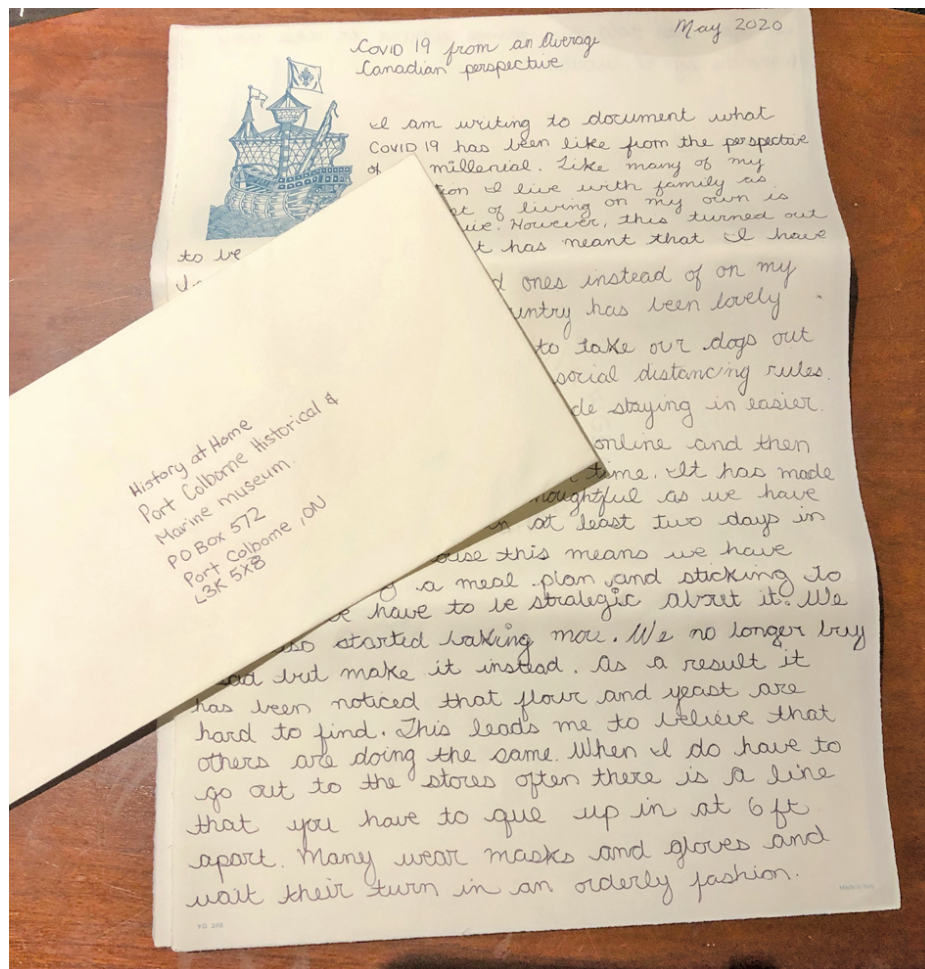 May 2020
COVID 19 from an Average
Canadian perspective
I am writing to document what
COVID 19 has been like from the perspective
of millenial. Like many of my
I live with family as
of living on my own is
However, this turned out
to be t has meant that I have
d ones instead of on my
untry has been lovely
to take our dogs out
social distancing rules.
de staying in easier.
online and then
time. It has made
houghtful as we have
at least two days in
this means we have
g a meal plan and sticking to
have to be strategic about it. We
so started baking more. We no longer buy
ad but make it instead. As a result it
has been noticed that flour and yeast are
hard to find. This leads me to believe that
others are doing the same. When I do have to
go out to the stores often there is a line
that you have to que up in at 6 ft
apart. Many wear masks and gloves and
wait their turn in an orderly fashion.
History at Home
Port Colborne Historical &
Marine museum.
PO Box 572
Port Colborne, ON
L3K 5X8